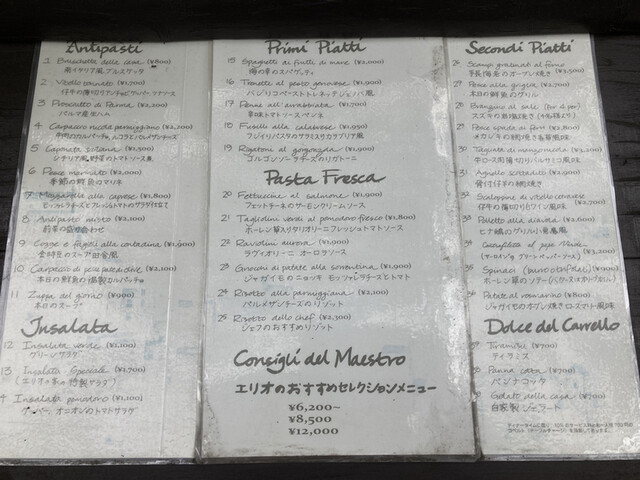 Antipasti
1 Bruschetta della casa (¥800)
南イタリア風ブルスケッタ
2 Vitello tonnato (¥1,700)
仔牛の薄切りハム ケッパーツナソース
3 Prosciutto di Parma (¥2,200)
パルマ産ハム
4 Carpaccio rucola parmigiano (¥2,200)
牛肉のカルパッチョ、ルコラとパルメザンチーズ
5 Caponata siciliana (¥1,500)
シチリア風野菜のトマトソース煮
6 Pesce marinato (¥2,000)
季節の鮮魚のマリネ
7 Mozzarella alla caprese (¥1,800)
モッツァレラチーズとフレッシュトマトのサラダ仕立て
8 Antipasto misto (¥2,100)
前菜の盛り合わせ
9 Cozze e fagioli alla contadina (¥1,900)
田舎風
10 Carpaccio di pesce palle d'olive (¥2,100)
本日の鮮魚の カルパッチョ
11 Zuppa del giorno (¥900)
本日のスープ
Insalata
12 Insalata verde (¥1,100)
グリーンサラダ
13 Insalata Speciale (¥1,700)
(エリオの家の特製サラダ)
Insalata pomodoro (¥1,100)
オニオンのトマトサラダ
Primi Piatti
15 Spaghetti ai frutti di mare (¥2,000)
海の幸のスパゲッティ
16 Trenette al pesto genovese (¥1,900)
バジリコペーストトレネッテジェノバ風
17 Penne all'arrabbiata (¥1,700)
辛味トマトソースペンネ
18 Fusilli alla calabrese (¥1,950)
フジィリパスタのカラブリア風
19 Rigatoni al gorgonzola (¥1,900)
ゴルゴンゾーラチーズのリガトーニ
Pasta Fresca
20 Fettuccine al salmone (¥1,900)
フェットチーネのサーモンクリームソース
21 Tagliolini verdi al pomodoro fresco (¥1,800)
ホーレン草入りタリオリーニフレッシュトマトソース
22 Raviolini aurora (¥1,900)
ラヴィオリーニ オーロラソース
23 Gnocchi di patate alla sorrentina (¥1,900)
ジャガイモのニョッキ モッツァレラチーズとトマト
24 Risotto alla parmigiana (¥2,100)
パルメザンチーズのリゾット
25 Risotto dello chef (¥2,300)
シェフのおすすめリゾット
Consigli del Maestro
エリオのおすすめセレクションメニュー
¥6,200~
¥8,500
¥12,000
Secondi Piatti
26 Scampi gratinati al forno
手長海老のオーブン焼き (¥3,500)
27 Pesce alla griglia (¥2,700)
本日の鮮魚のグリル
28 Branzino al sale (for 2 per)
スズキの岩塩焼き
29 Pesce spada ai ferri (¥2,800)
メカジキの網焼き香草風味
30 Tagliata di manzo (¥3,200)
牛ロース肉薄切りバルサミコ風味
31 Agnello scottadito (¥2,900)
骨付仔羊の網焼き
32 Scaloppine di vitello
仔牛の薄切りワイン風味
33 Galletto alla diavola (¥2,600)
ヒナ鶏のグリル悪魔風
34 al pepe (¥3,200)
グリーンペパーソース
35 Spinaci (burro
ホーレン草のソテー
Patate al rosmarino (¥800)
ジャガイモのオーブン焼きローズマリー風味
Dolce del Carrello
Tiramisù (¥700)
ティラミス
Panna cotta (¥700)
パンナコッタ
Gelato della casa (¥700)
自家製ジェラート